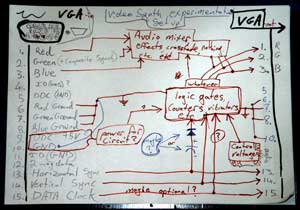 VGA in
Video Synth experimentation
Set up
VGA out
Audio mixer
effects crosstalk
etc. etc.
1. Red
2. Green (+Composite Sync)
3. Blue
4. ID
5. DDC (GND)
6. Red Ground
7. Green Ground
8. Blue Ground
+5V
10. GND
11. ID (GND)
13. Horizontal Sync
14. Vertical Sync
15. DATA Clock
whatever
logic gates,
counters vibrators
etc
power for
circuit?
?
or
?
Control
Voltages
maybe optional?
1. R
2. G
3. B
13.
14.
15.